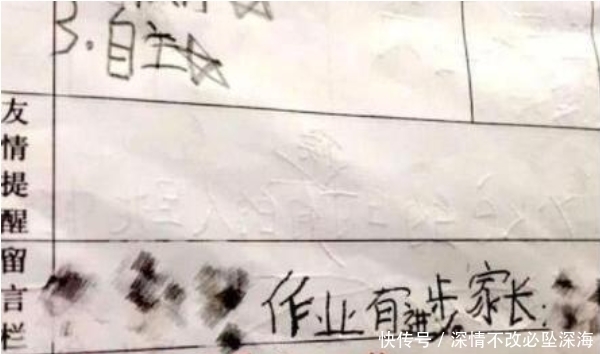 3.自主
友情提醒留言栏
作业有进步家长:
快传号/深情不改必坠深海